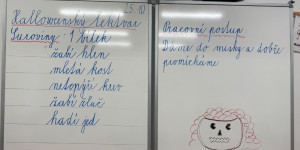 25.10.
Halloweenský lektvar
Suroviny: 1 hrnek
žabí hlen
mletá kost
netopýří krev
žabí žluč
hadí jed
Pracovní postup
Dáme do misky a dobře
promícháme